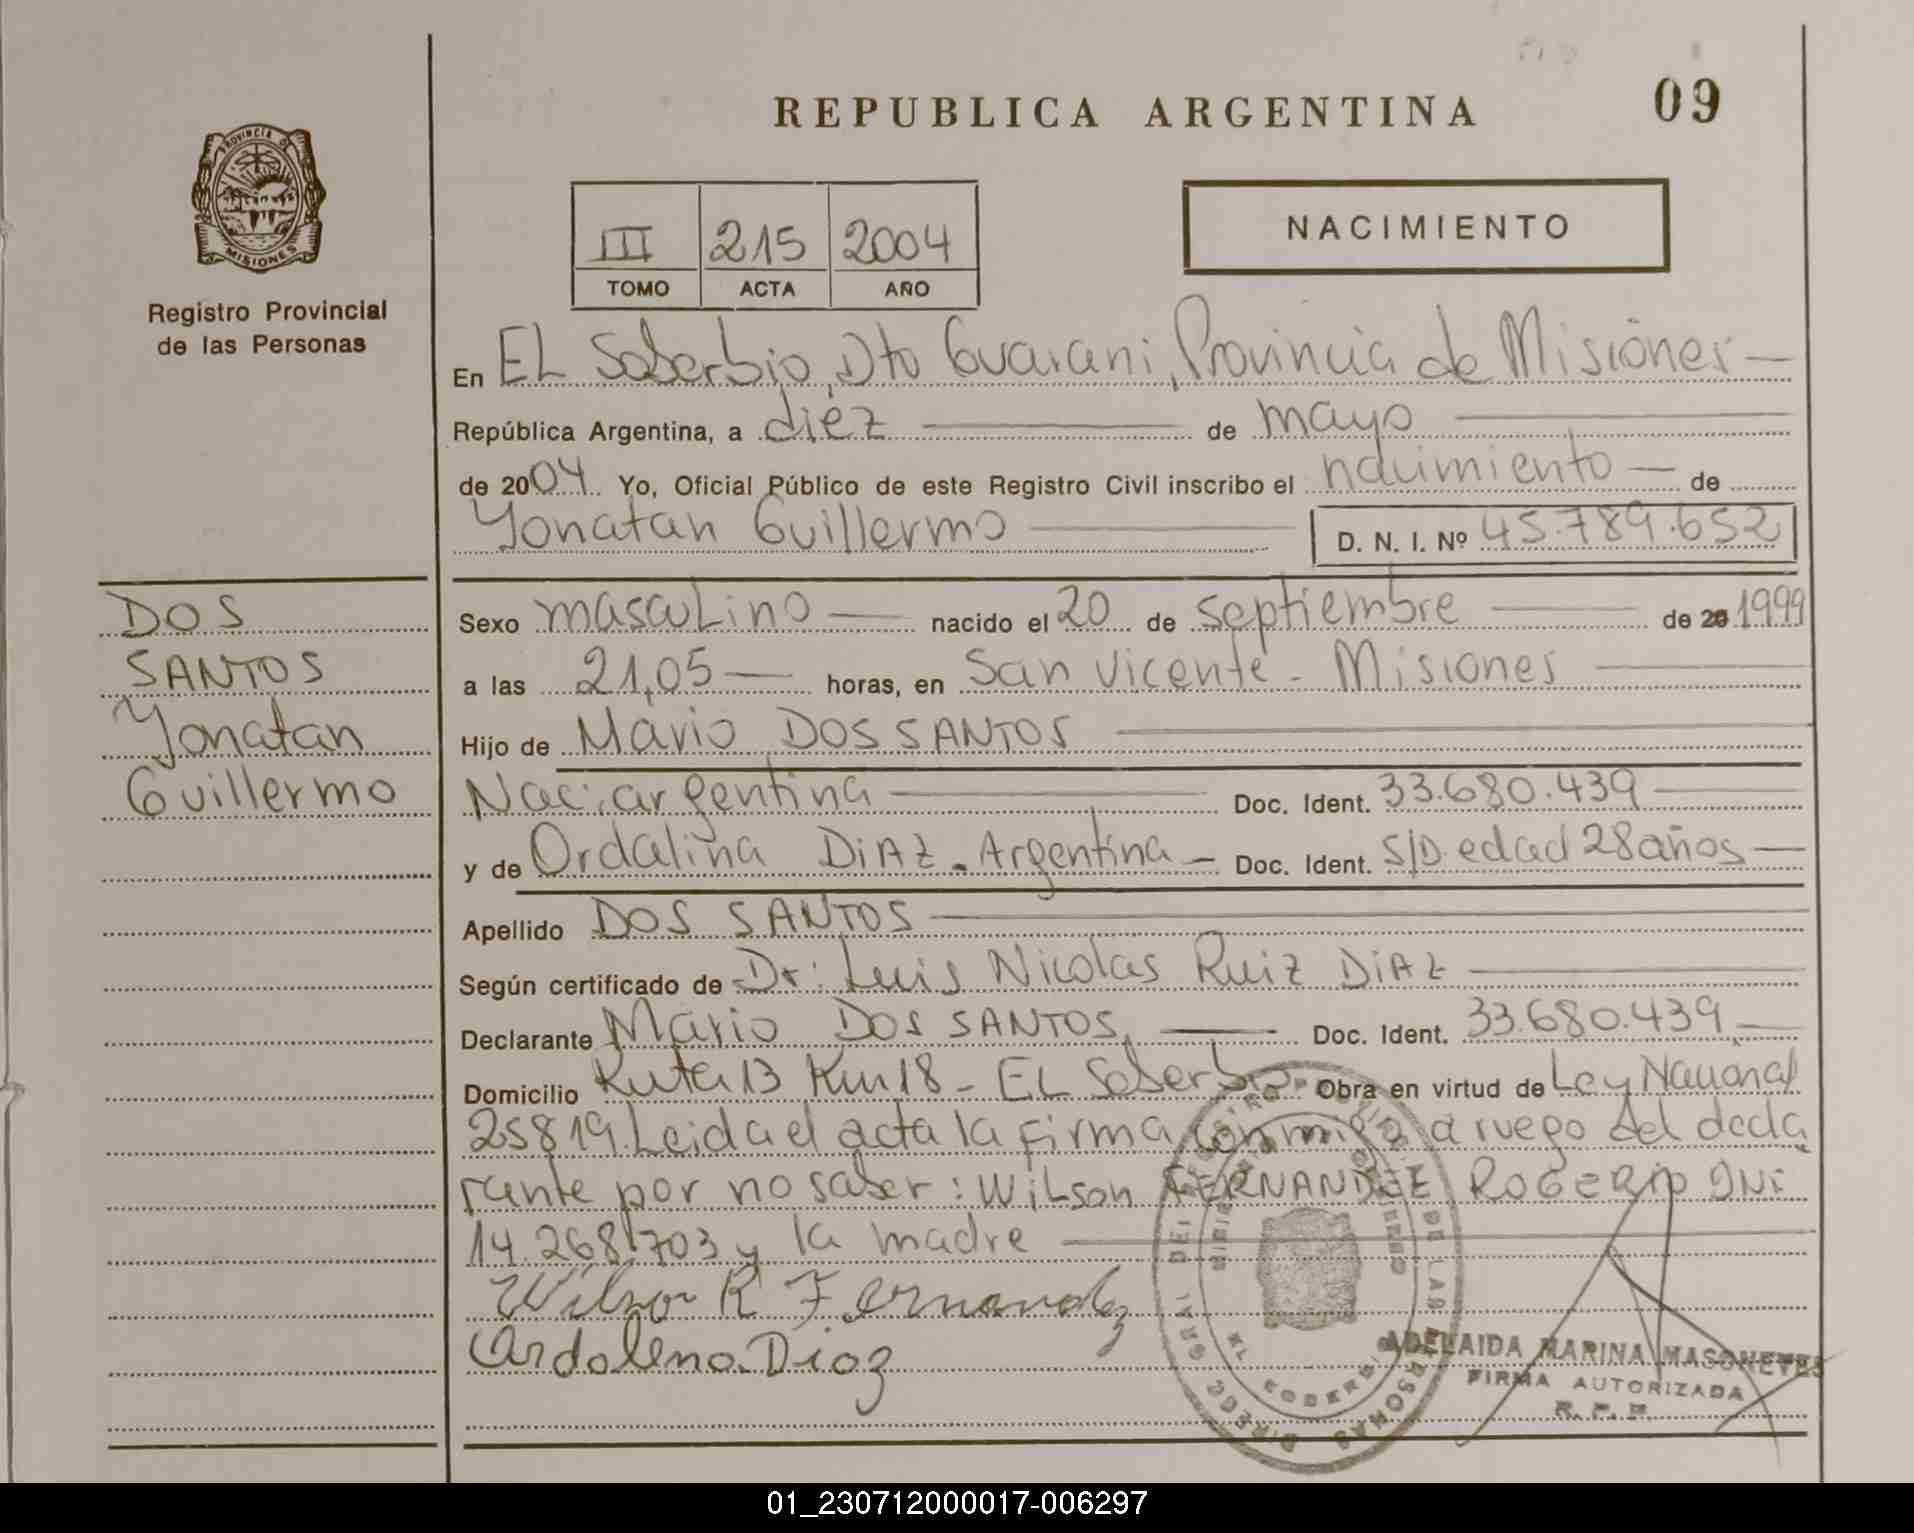 REPUBLICA ARGENTINA
09
PROVINCIA DE
MISIONES
Registro Provincial
de las Personas
III 215 2004
TOMO ACTA AÑO
NACIMIENTO
En EL Soberbio, Dto Guarani, Provincia de Misiones —
República Argentina, a diez — de mayo —
de 2004. Yo, Oficial Público de este Registro Civil inscribo el nacimiento — de
Yonatan Guillermo — D. N. I. Nº 45.789.652
DOS
SANTOS
Yonatan
Guillermo
Sexo masculino — nacido el 20 de septiembre — de 1999
a las 21,05 — horas, en San Vicente - Misiones —
Hijo de Mario DOS SANTOS —
Nac: argentina — Doc. Ident. 33.680.439 —
y de Ordalina DiAZ - Argentina — Doc. Ident. S/D. edad 28 años —
Apellido DOS SANTOS —
Según certificado de Dr: Luis Nicolas Ruiz DiAZ —
Declarante Mario DOS SANTOS, — Doc. Ident. 33.680.439 —
Domicilio Ruta 13 Km 18 - EL Soberbio Obra en virtud de Ley Nacional
25819. Leida el acta la firma conmigo a ruego del decla
rante por no saber: Wilson FERNANDEZ ROGERIO DNI
14.268.703 y la madre —
Wilson R Fernandez
Ordolena Dioz
EL SOBERBIO
ADELAIDA MARINA MASONEYES
FIRMA AUTORIZADA
R. P. P.
01_230712000017-006297